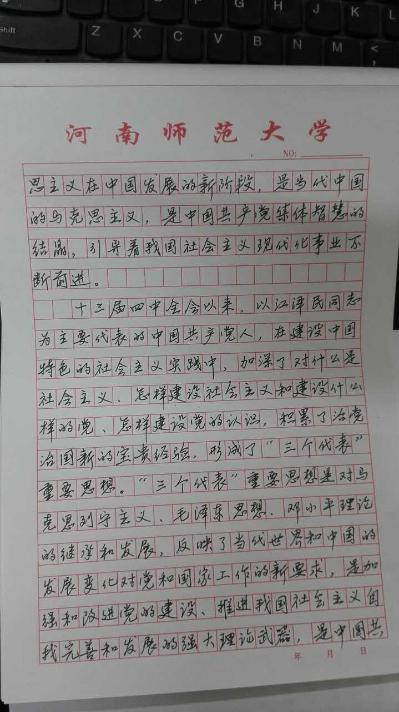 Shift
Z X C V B N M
河南师范大学
NO:
思主义在中国发展的新阶段，是当代中国
的马克思主义，是中国共产党集体智慧的
结晶，引导着我国社会主义现代化事业不
断前进。
十三届四中全会以来，以江泽民同志
为主要代表的中国共产党人，在建设中国
特色的社会主义实践中，加深了对什么是
社会主义、怎样建设社会主义和建设什么
样的党、怎样建设党的认识，积累了治党
治国新的宝贵经验，形成了“三个代表”
重要思想。“三个代表”重要思想是对马
克思列宁主义、毛泽东思想、邓小平理论
的继承和发展，反映了当代世界和中国的
发展变化对党和国家工作的新要求，是加
强和改进党的建设、推进我国社会主义自
我完善和发展的强大理论武器，是中国共
年 月 日